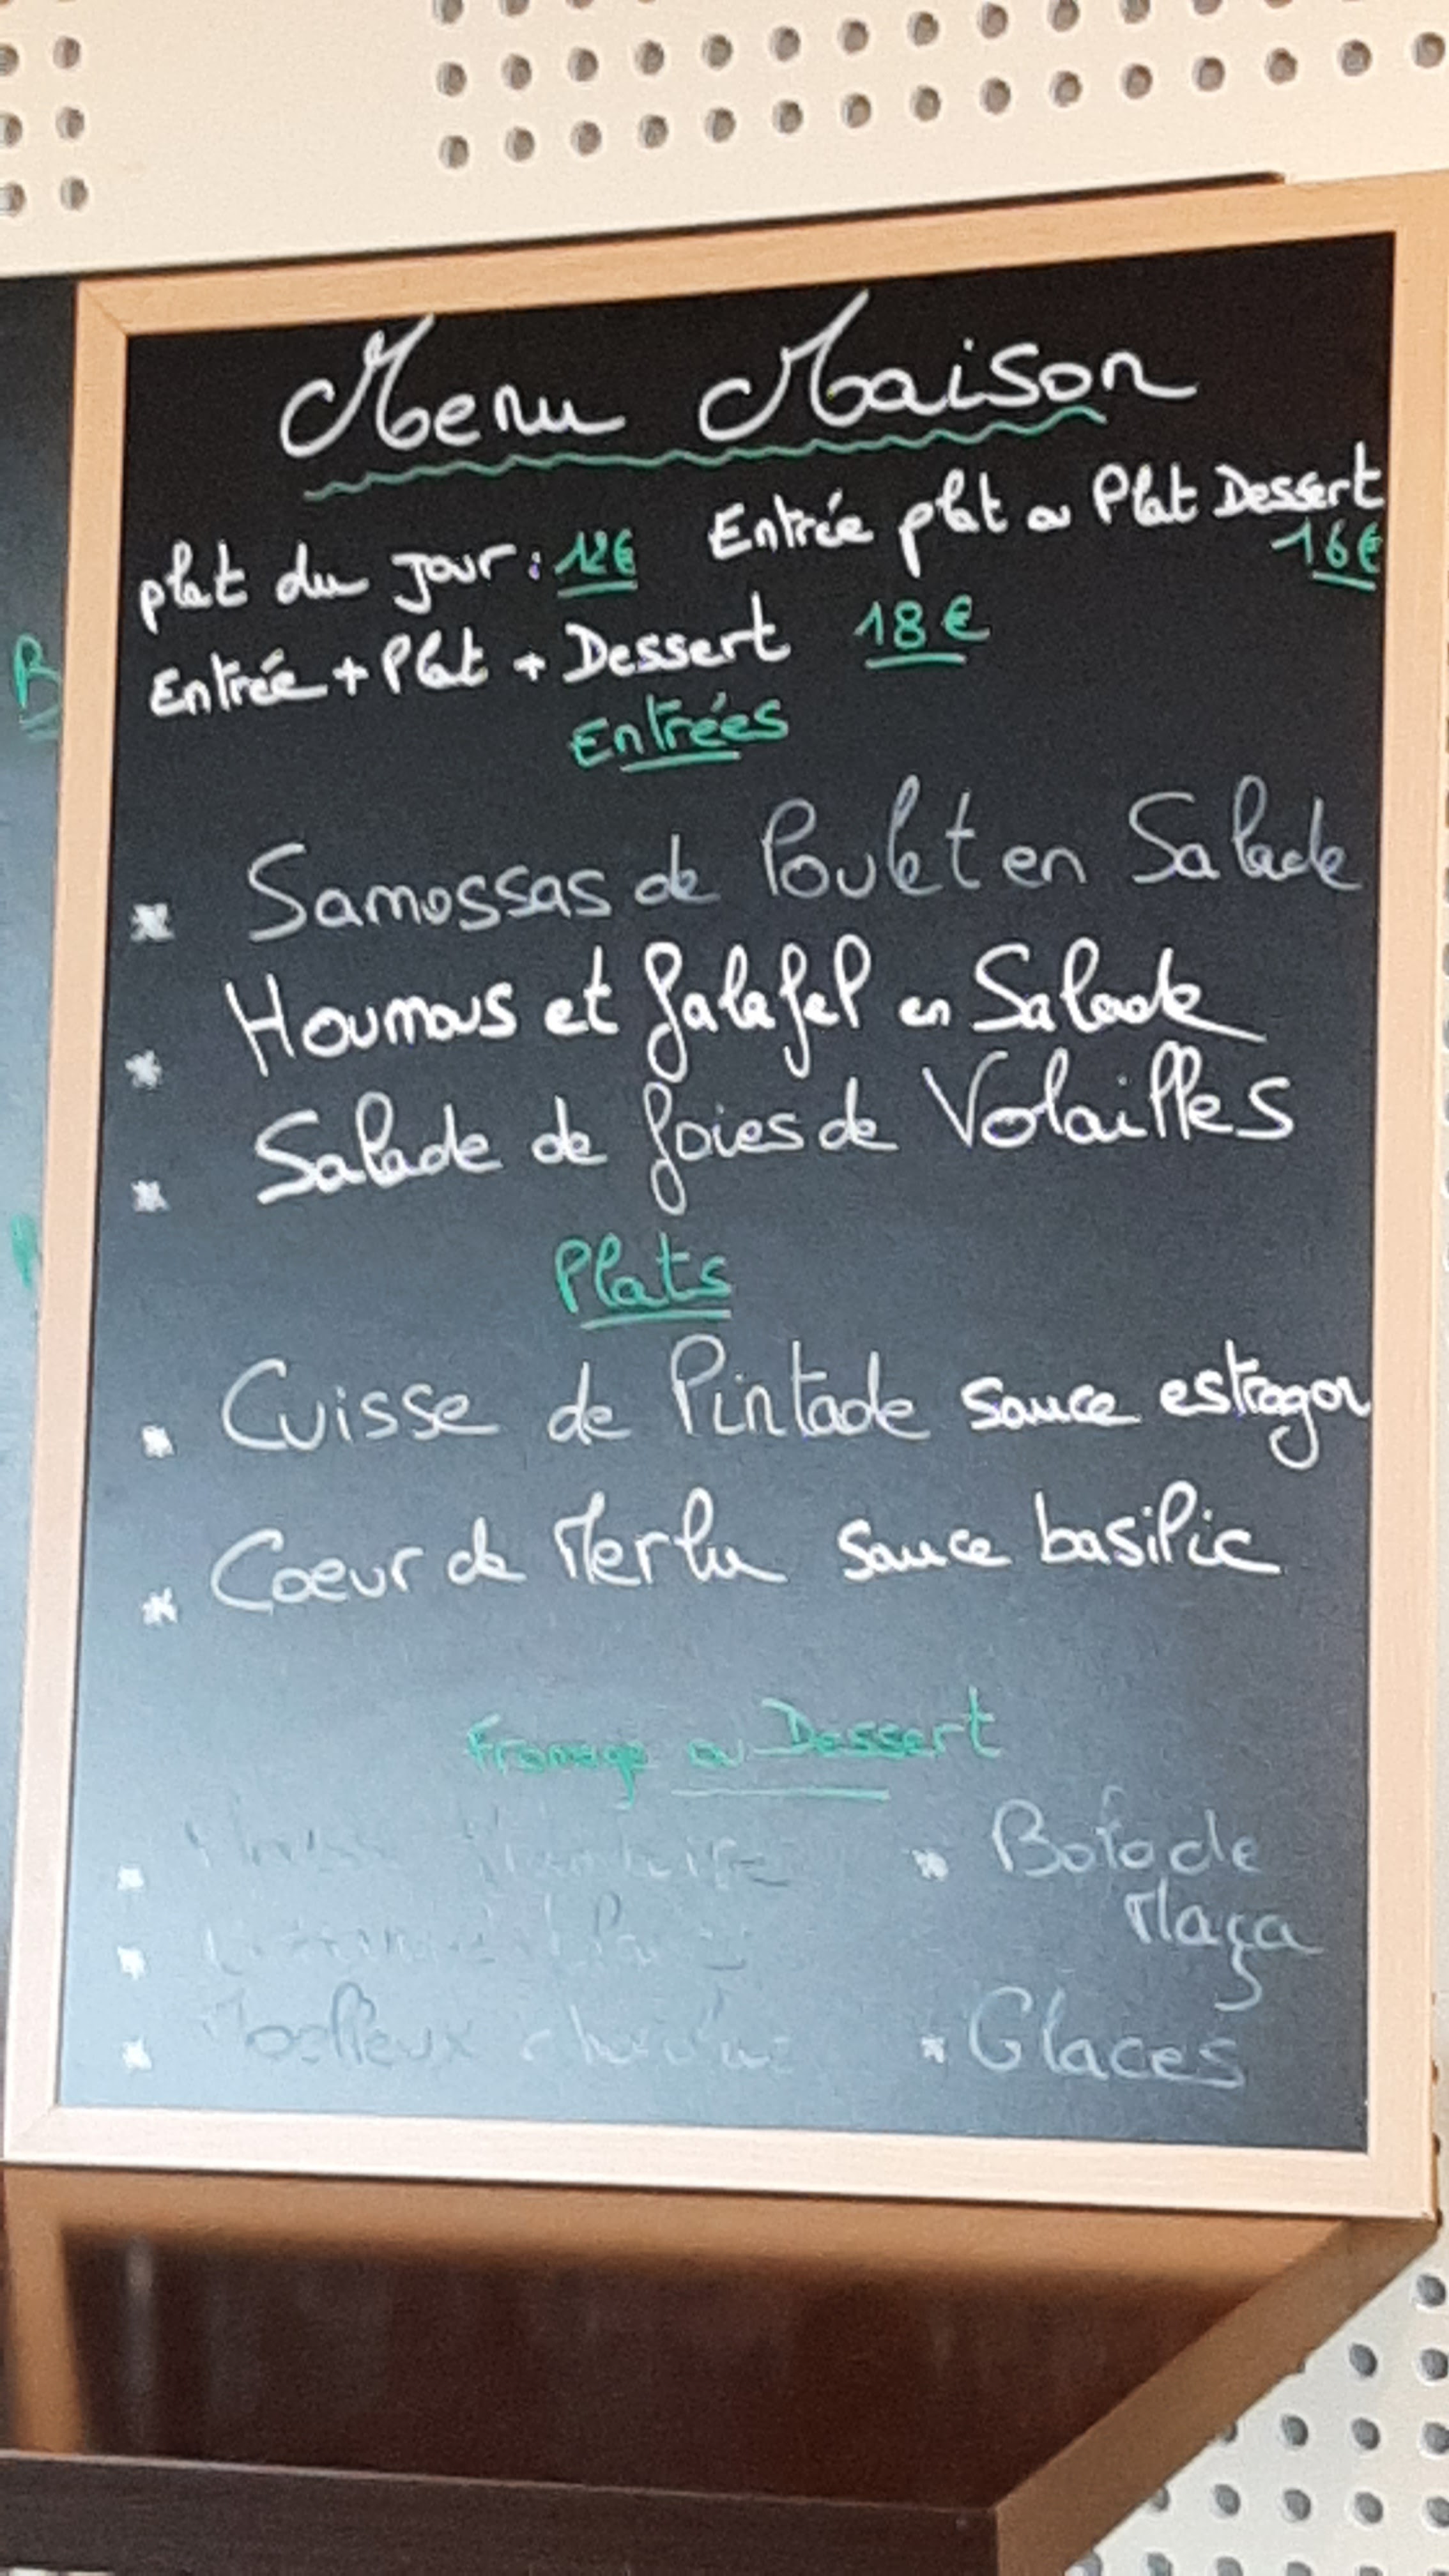 Menu Maison
plat du jour : 12€ Entrée plat ou Plat Dessert
16€
Entrée + Plat + Dessert 18€
Entrées
* Samossas de Poulet en Salade
* Houmous et falafel en Salade
* Salade de foies de Volailles
Plats
* Cuisse de Pintade sauce estragon
* Coeur de Merlu sauce basilic
Fromage ou Dessert
* Bolo de
Maça
* Moelleux * Glaces